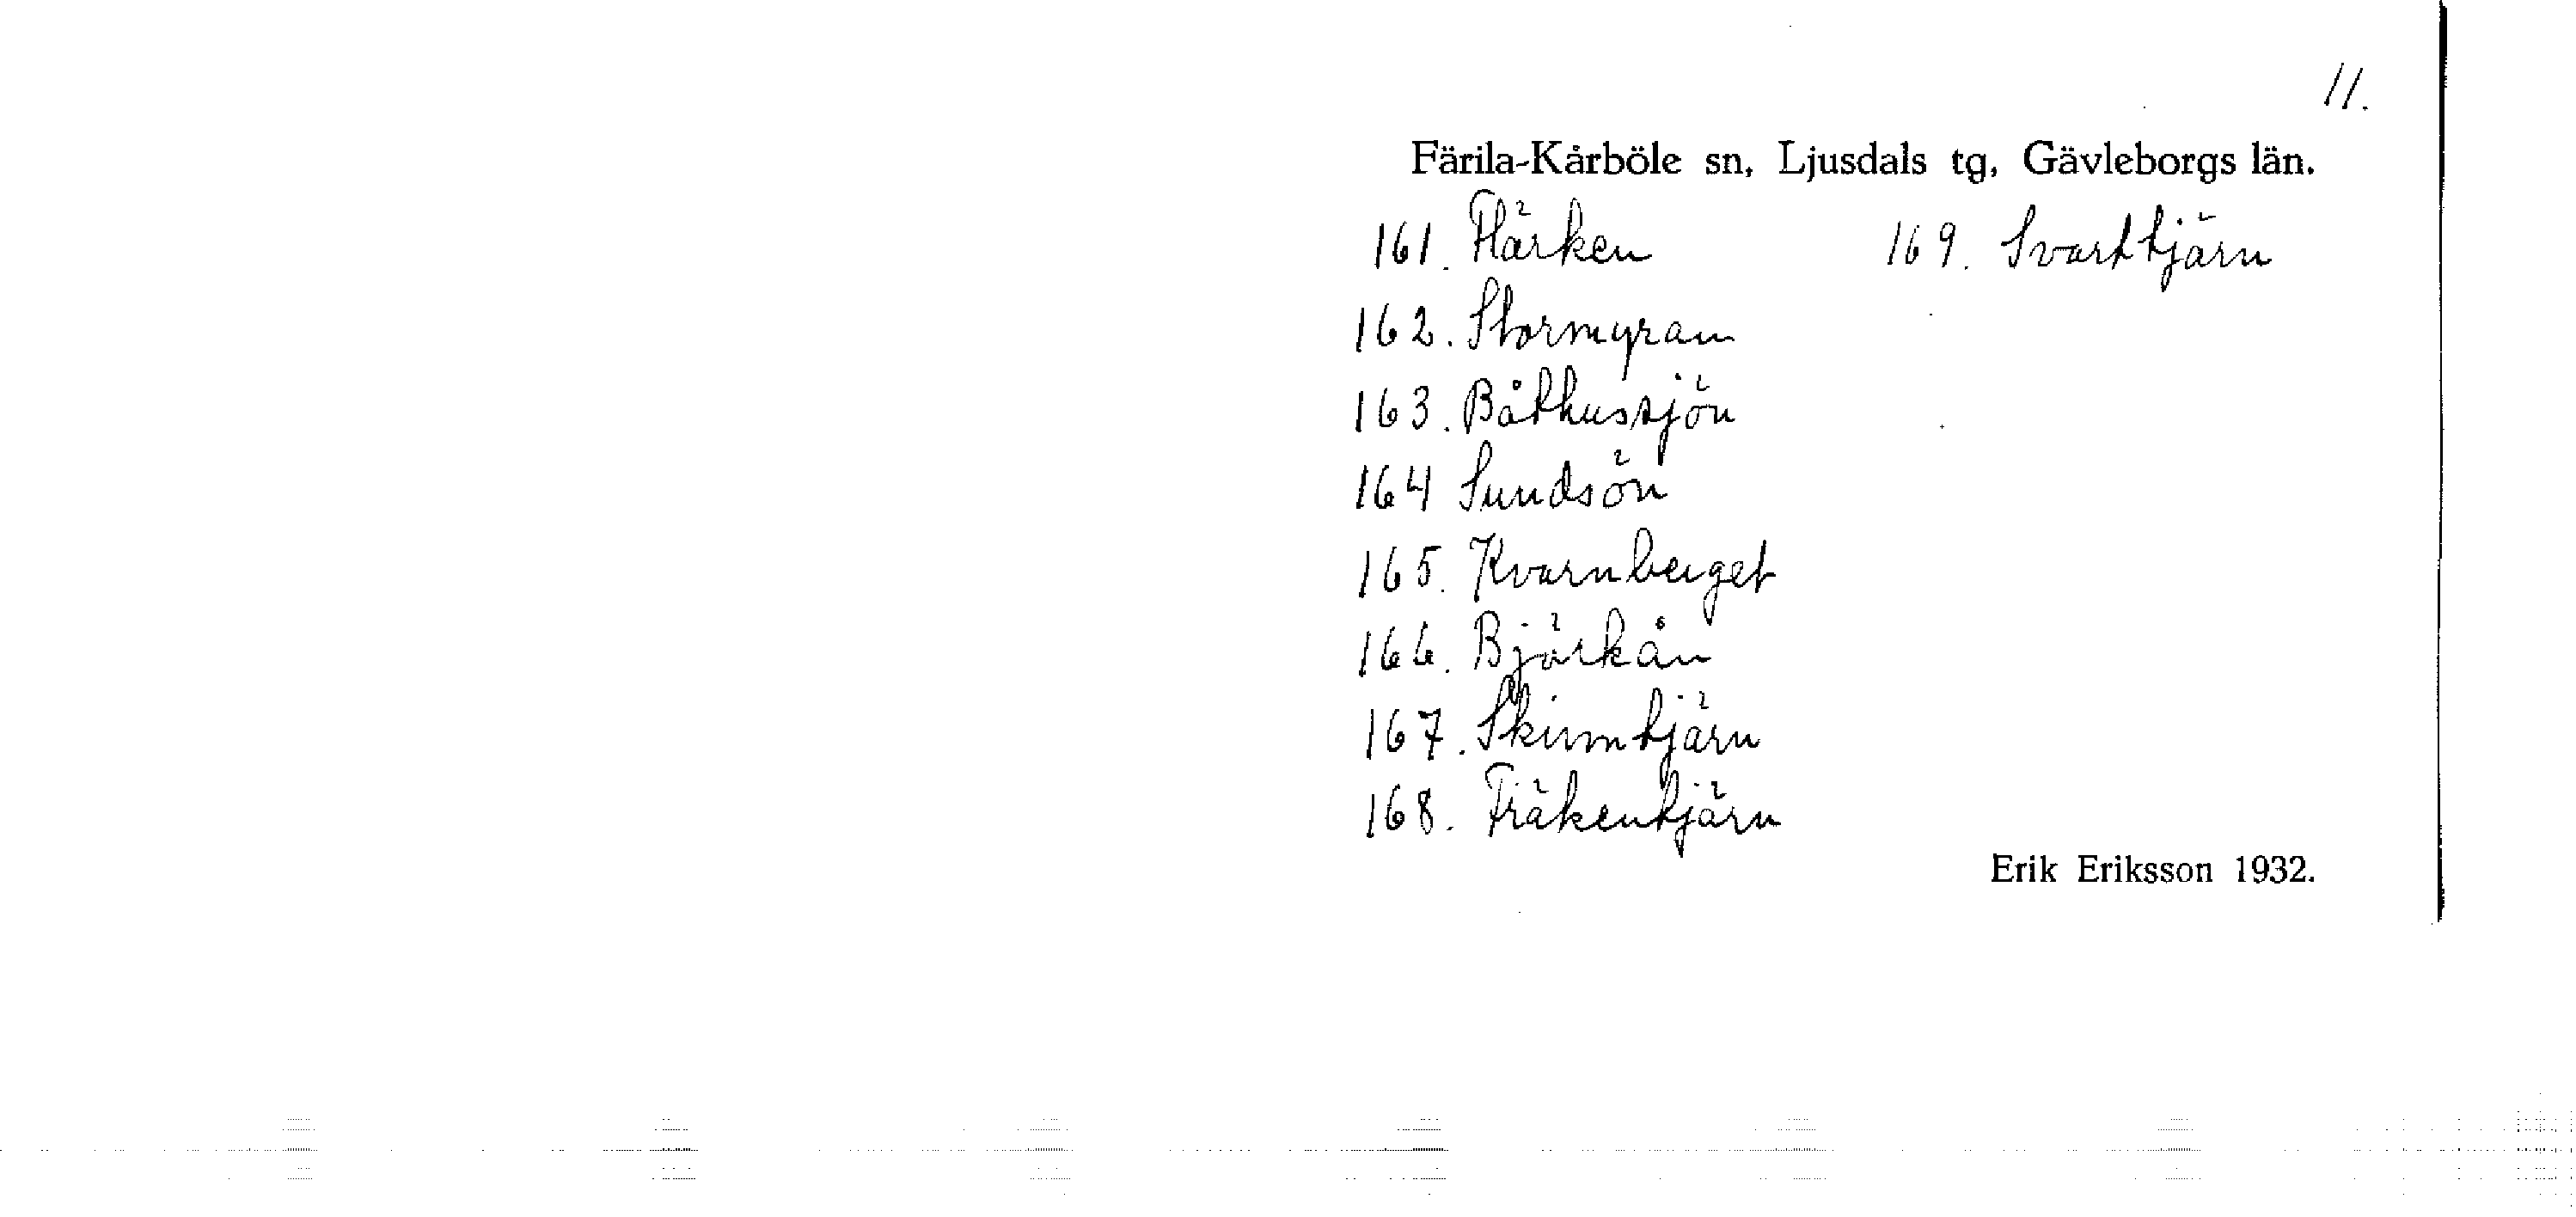 11.
Färila-Kårböle sn, Ljusdals tg, Gävleborgs län.
161. Flärken
162. Stormyran
163. Båthussjön
164 Sundsön
165. Kvarnberget
166. Björkån
167. Skimtjärn
168. Fräkentjärn
169. Svarttjärn
Erik Eriksson 1932.